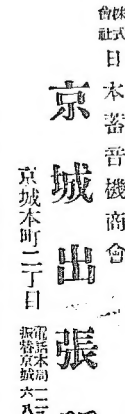 株式會社日本蓄音機商會
京城出張
京城本町二丁目
電話本局一二
振替京城六八